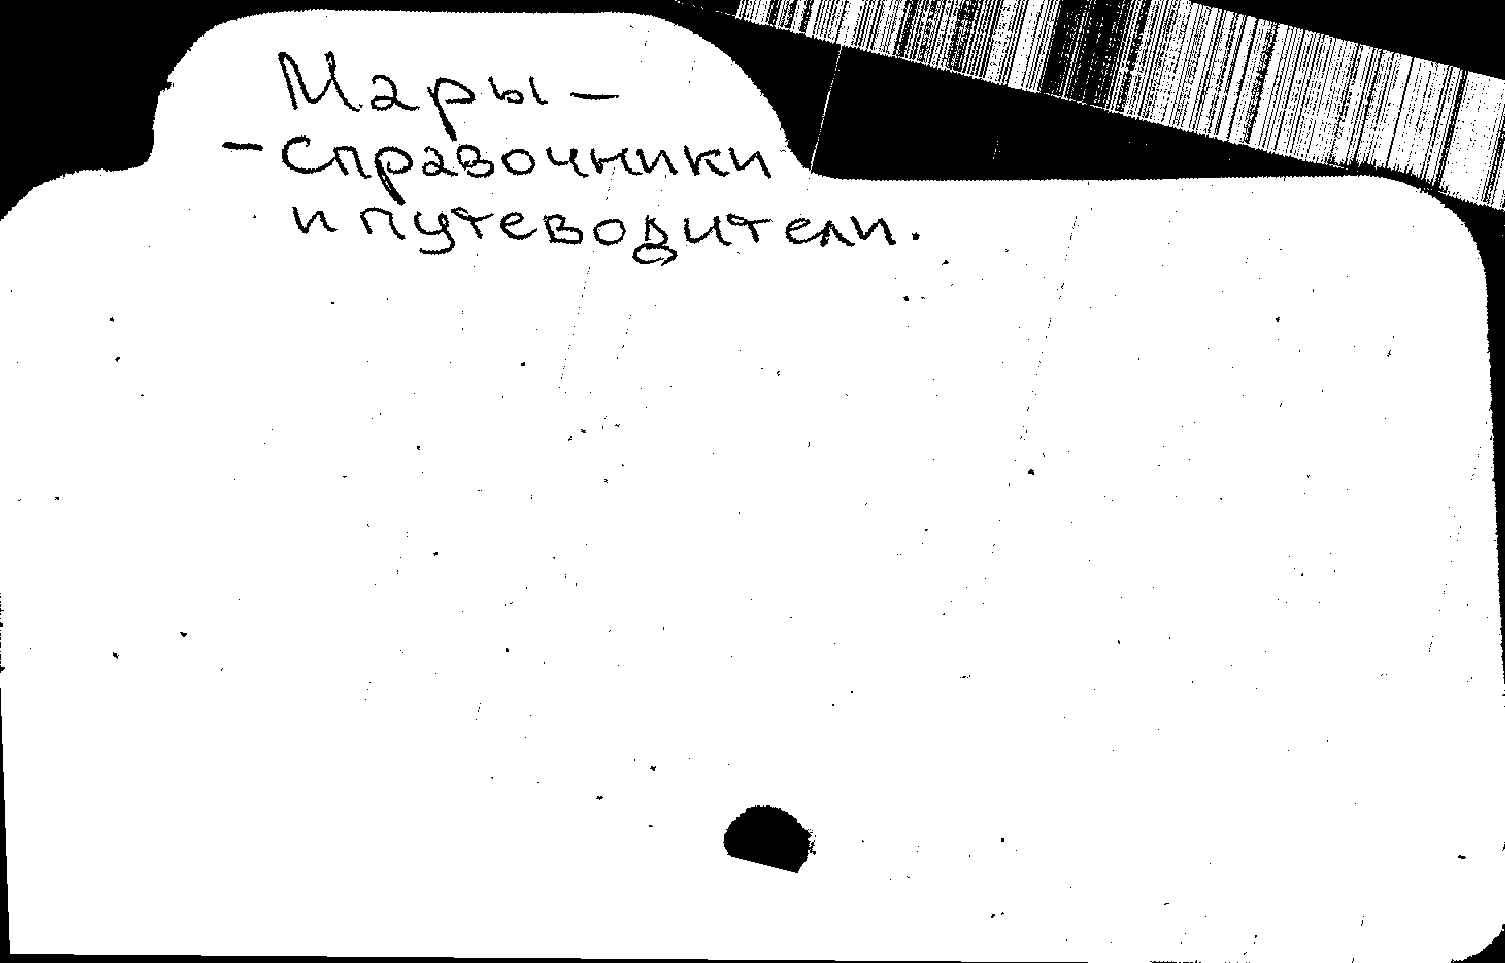 Мары –
– Справочники
и путеводители.